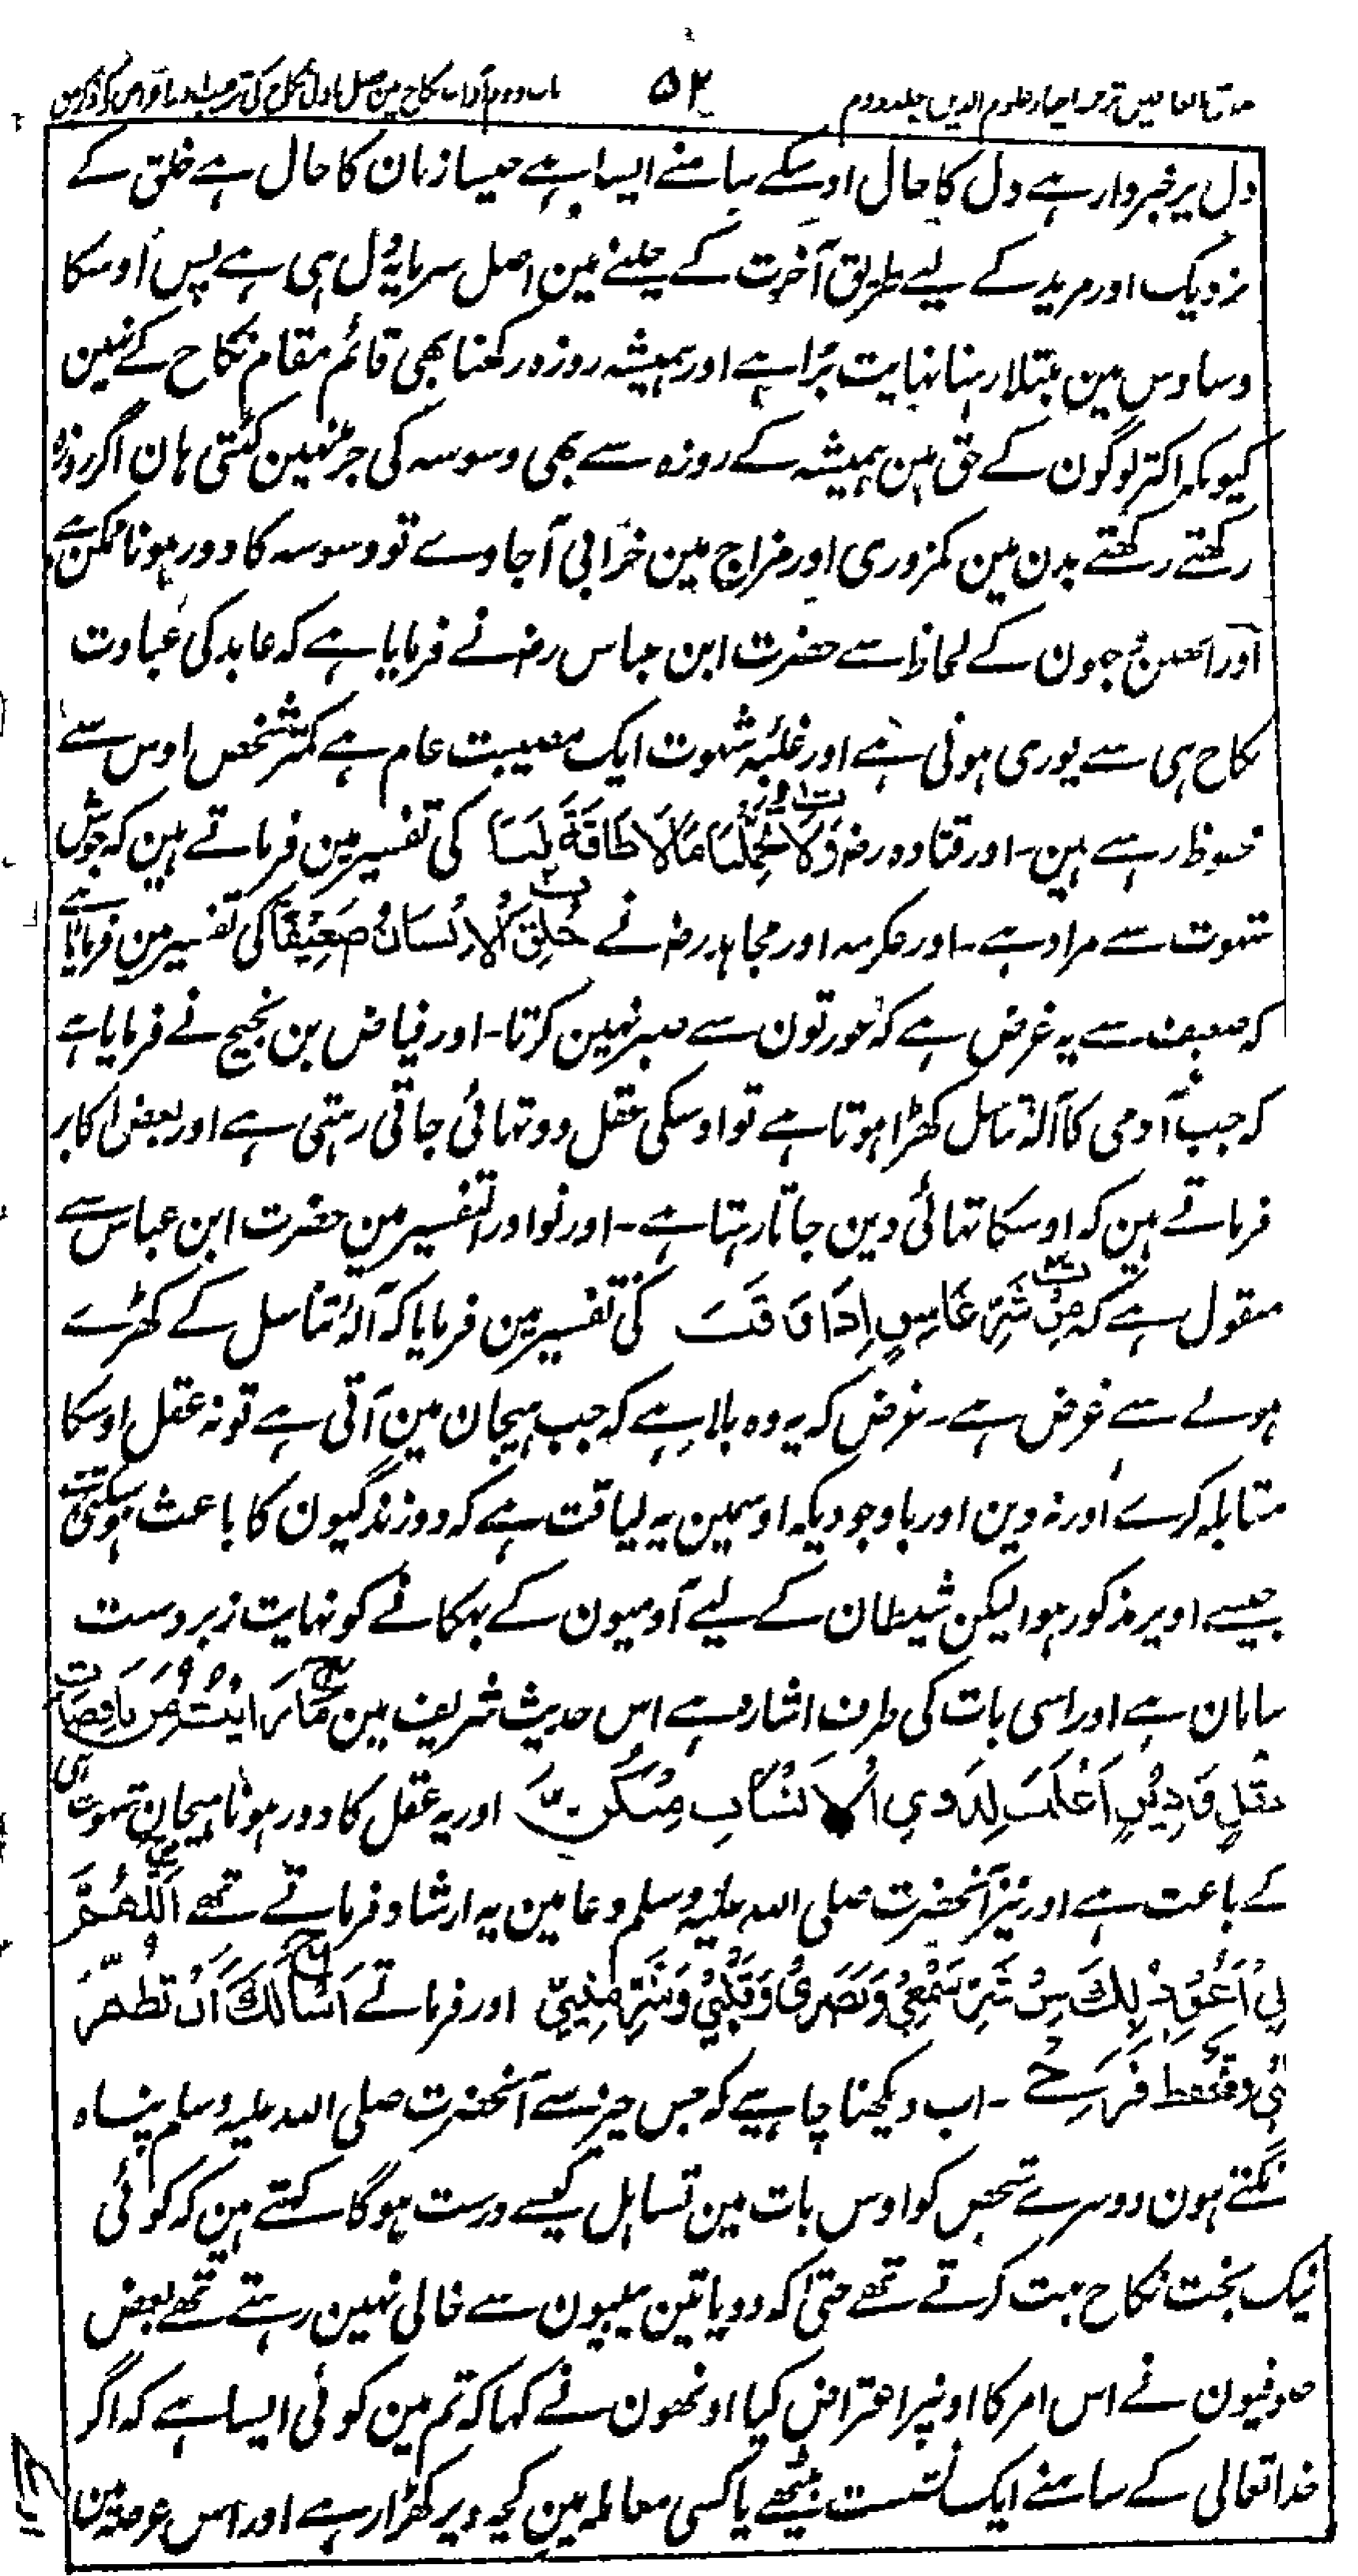 مذاق العارفین ترجمہ احیاء علوم الدین جلد دوم ۵۲ باب دوم آداب نکاح مین فصل اول نکاح کی
دل پر خبردار ہے دل کا حال اوسکے سامنے ایسا ہے جیسا زبان کا حال ہے خلق کے
نزدیک اور مرید کے لیے طریق آخرت کے چلنے مین اصل سرمایہ دل ہی ہے پس اوسکا
وساوس مین مبتلا رہنا نہایت بُرا ہے اور ہمیشہ روزہ رکھنا بھی قائم مقام نکاح کے نہین
کیونکہ اکثر لوگون کے حق مین ہمیشہ کے روزہ سے بھی وسوسہ کی جڑ نہین کٹتی ہان اگر روزہ
رکھتے رکھتے بدن مین کمزوری اور مزاج مین خرابی آجاوے تو وسوسہ کا دور ہونا ممکن ہے
اور انھین وجہون کے لحاظ سے حضرت ابن عباس رضہ نے فرمایا ہے کہ عابد کی عبادت
نکاح ہی سے پوری ہوتی ہے اور غلبۂ شہوت ایک مصیبت عام ہے کمتر شخص اوس سے
محفوظ رہے ہین۔ اور قتادہ رضہ وَلَا تُحَمِّلْنَا مَا لَا طَاقَةَ لَنَا کی تفسیر مین فرماتے ہین کہ جوش
شہوت سے مراد ہے۔ اور عکرمہ اور مجاہد رضہ نے خُلِقَ الْاِنْسَانُ ضَعِیْفًا کی تفسیر مین فرمایا ہے
کہ ضعیف سے یہ غرض ہے کہ عورتون سے صبر نہین کرتا۔ اور فیاض بن نجیح نے فرمایا ہے
کہ جب آدمی کا آلۂ تناسل کھڑا ہوتا ہے تو اوسکی عقل دو تہائی جاتی رہتی ہے اور بعض اکابر
فرماتے ہین کہ اوسکا تہائی دین جاتا رہتا ہے۔ اور نوادر التفسیر مین حضرت ابن عباس سے
منقول ہے کہ مِنْ شَرِّ غَاسِقٍ اِذَا وَقَبَ کی تفسیر مین فرمایا کہ آلۂ تناسل کے کھڑے
ہونے سے غرض ہے۔ غرض کہ یہ وہ بلا ہے کہ جب ہیجان مین آتی ہے تو نہ عقل اوسکا
مقابلہ کرے اور نہ دین اور باوجودیکہ اوسمین یہ لیاقت ہے کہ دو زندگیون کا باعث ہوسکتی ہے
جیسے اوپر مذکور ہوا لیکن شیطان کے لیے آدمیون کے بہکانے کو نہایت زبردست
سامان ہے اور اسی بات کی طرف اشارہ ہے اس حدیث شریف مین مَا رَاَیْتُ مِنْ نَاقِصَاتِ
عقلٍ وَدِیْنٍ اَغْلَبَ لِذَوِی الْاَلْبَابِ مِنْکُنَّ اور یہ عقل کا دور ہونا ہیجان شہوت ہی
کے باعث ہے اور نیز آنحضرت صلی اللہ علیہ وسلم دعا مین یہ ارشاد فرماتے تھے اَللّٰهُمَّ
اِنِّیْ اَعُوْذُ بِكَ مِنْ شَرِّ سَمْعِیْ وَبَصَرِیْ وَقَلْبِیْ وَشَرِّ مَنِیِّیْ اور فرماتے اَسْاَلُكَ اَنْ تُطَهِّرَ
قلبی وتحفظ فَرْجِیْ ۔ اب دیکھنا چاہیے کہ جس چیز سے آنحضرت صلی اللہ علیہ وسلم پناہ
مانگتے ہون دوسرے شخص کو اوس بات مین تساہل کیسے درست ہوگا کہتے ہین کہ کوئی
نیک بخت نکاح بہت کرتے تھے حتی کہ دو یا تین بیبیون سے خالی نہین رہتے تھے بعض
صوفیون نے اس امر کا اونپر اعتراض کیا اونھون نے کہا کہ تم مین کوئی ایسا ہے کہ اگر
خدا تعالی کے سامنے ایک نشست بیٹھے یا کسی معاملہ مین کچھ دیر کھڑا رہے اور اس عرصہ مین